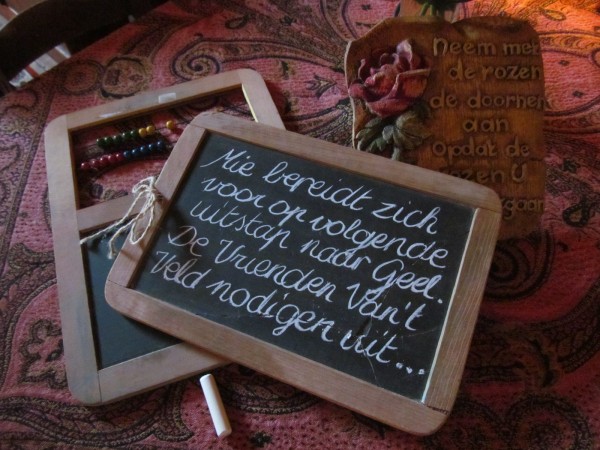 Mie bereidt zich
voor op volgende
uitstap naar Geel.
De Vrienden Van't
Veld nodigen uit...
Neem met
de rozen
de doornen
aan
Opdat de
rozen U